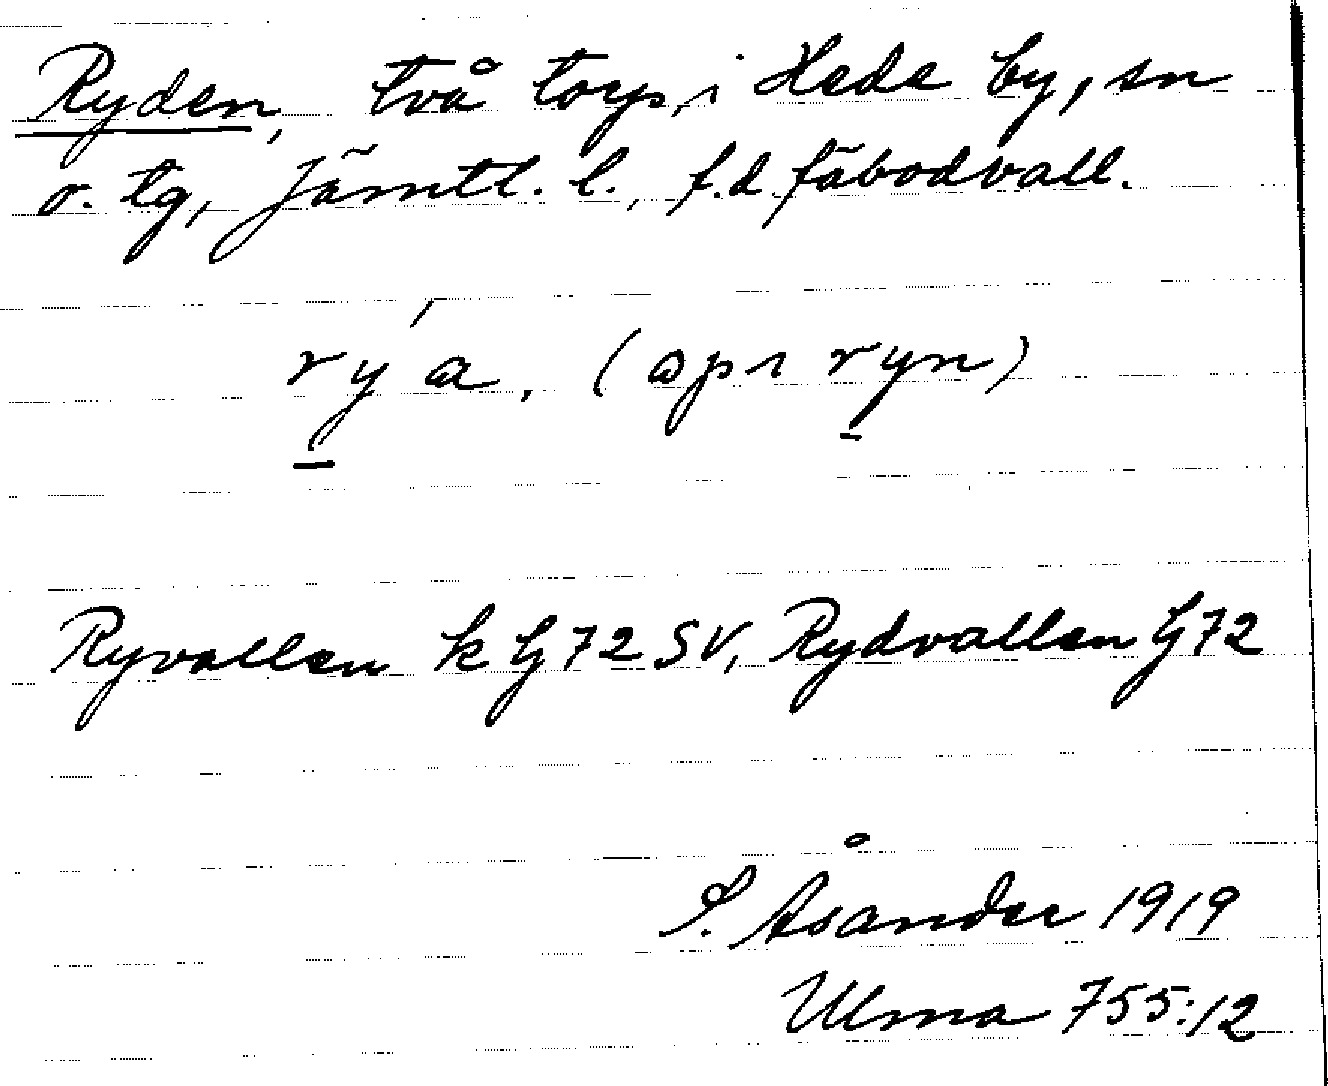 Ryden, två torp, i Hede by, sn
o. tg, Jämtl. l., f.d. fäbodvall.
rýa, (opi ryn)
Ryvallen k G 72 SV, Rydvallen G 72
S. Åsander 1919
Ulma 755:12